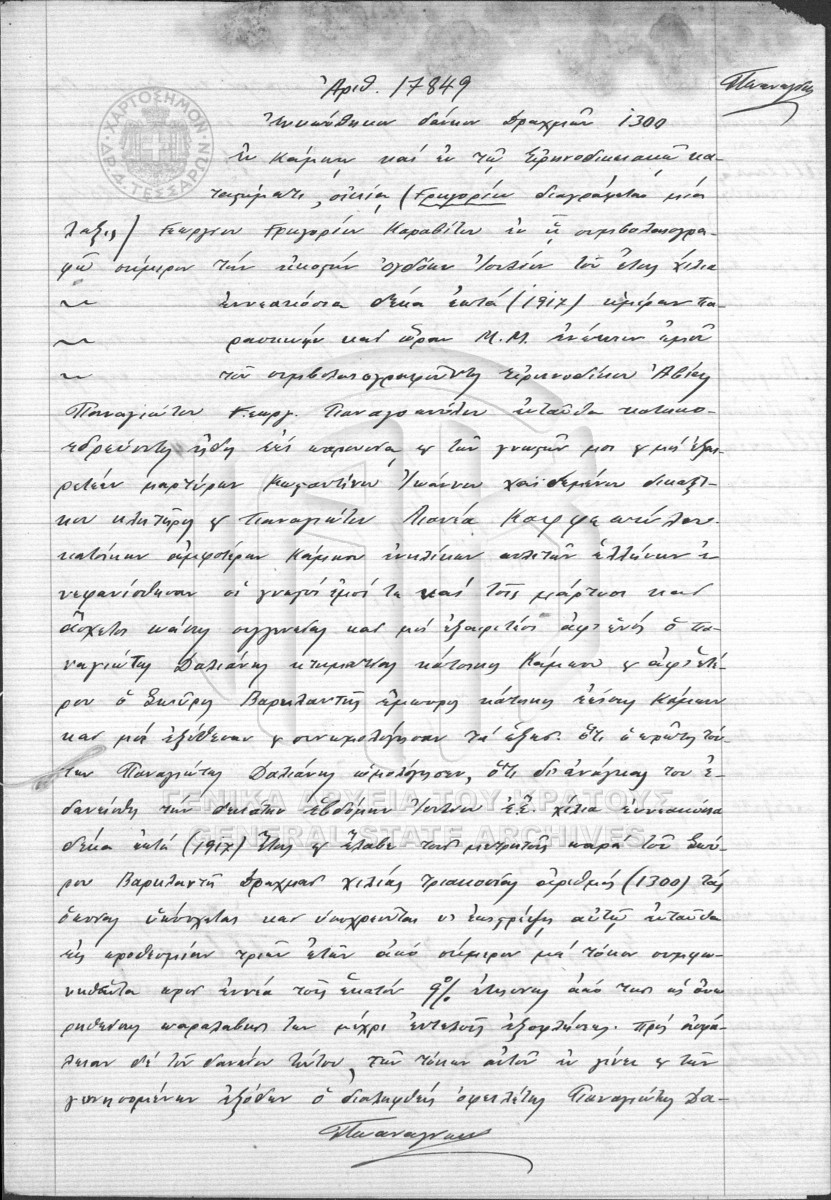 Ἀριθ. 17849
Ἐνυπόθηκον δάνειον Δραχμῶν 1300
ΧΑΡΤΟΣΗΜΟΝ
ΔΡ. Δ. ΤΕΣΣΑΡΩΝ
Ἐν Κάμπῳ καὶ ἐν τῷ Εἰρηνοδικειακῷ κα-
ταστήματι, οἰκίᾳ (Γρηγορίου διαγράφεται μία
λέξις) Γεωργίου Γρηγορίου Καραβίτου ἐν ᾗ συμβολαιογρα-
φῶ σήμερον τὴν εἰκοστὴν ὀγδόην Ἰουλίου τοῦ ἔτους χίλια
ἐννεακόσια δέκα ἑπτά (1917) ἡμέραν Πα-
ρασκευὴν καὶ ὥραν Μ.Μ. ἐνώπιον ἐμοῦ
τοῦ συμβολαιογραφοῦντος Εἰρηνοδίκου Ἀβίας
Παναγιώτου Γεωργ. Παναγοπούλου ἐνταῦθα κατοικο-
εδρεύοντος ἤδη ἐπὶ παρουσίᾳ καὶ τῶν γνωστῶν μοι καὶ μὴ ἐξαι-
ρετέων μαρτύρων Κωσταντίνου Ἰωάννου δικαστι-
κοῦ κλητῆρος καὶ Παναγιώτου
κατοίκων ἀμφοτέρων Κάμπου ἐνηλίκων πολιτῶν ἑλλήνων ἐ-
νεφανίσθησαν οἱ γνωστοί ἐμοί τε καὶ τοῖς μάρτυσι καὶ
ἄσχετοι πάσης συγγενείας καὶ μὴ ἐξαιρετέοι ἀφ' ἑνός ὁ Πα-
ναγιώτης Δαλιάνης κτηματίας κάτοικος Κάμπου καὶ ἀφ' ἑτέ-
ρου ὁ Σπύρος Βαρκλαντῆς ἔμπορος κάτοικος ἐπίσης Κάμπου
καὶ μοὶ ἐξέθεσαν καὶ συνωμολόγησαν τὰ ἑξῆς· ὅτι ὁ πρῶτος τού-
των Παναγιώτης Δαλιάνης ὡμολόγησεν, ὅτι δι' ἀνάγκας του ἐ-
δανείσθη τὴν δεκάτην ἑβδόμην Ἰουλίου ἐ.ἔ. χίλια ἐννεακόσια
δέκα ἑπτά (1917) ἔτους καὶ ἔλαβε τοῖς μετρητοῖς παρὰ τοῦ Σπύ-
ρου Βαρκλαντῆ Δραχμὰς χιλίας τριακοσίας ἀριθμός (1300) τὰς
ὁποίας ὑπόσχεται καὶ ὑποχρεοῦται νὰ ἐπιστρέψῃ αὐτῷ ἐνταῦθα
εἰς προθεσμίαν τριῶν ἐτῶν ἀπὸ σήμερον μὲ τόκον συμφω-
νηθέντα πρὸς ἐννέα τοῖς ἑκατόν 9% ἐτησίως ἀπὸ τῆς ὡς ἄνω
ρηθείσης παραλαβῆς των μέχρι ἐντελοῦς ἐξοφλήσεως. Πρὸς ἀσφά-
λειαν δὲ τοῦ δανείου τούτου, τῶν τόκων αὐτοῦ ἐν γένει καὶ τῶν
γενησομένων ἐξόδων ὁ διαληφθείς ὀφειλέτης Παναγιώτης Δα-
ΓΕΝΙΚΑ ΑΡΧΕΙΑ ΤΟΥ ΚΡΑΤΟΥΣ
GENERAL STATE ARCHIVES